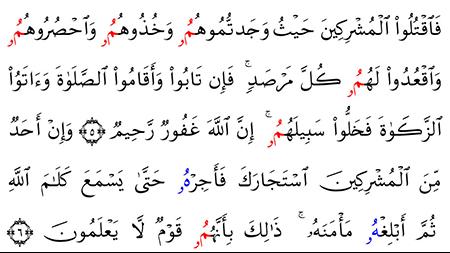 فَاَقْتُلُواْ اُلْمُشْرِكِينَ حَيْثُ وَجَدتُّمُوهُمُۥ وَخُذُوهُمُۥ وَاَحْصُرُوهُمُۥ
وَاَقْعُدُواْ لَهُمُۥ كُلَّ مَرْصَدٍۚ فَإِن تَابُواْ وَأَقَامُواْ اُلصَّلَوٰةَ وَءَاتَوُاْ
اُلزَّكَوٰةَ فَخَلُّواْ سَبِيلَهُمُۥۚ إِنَّ اَللَّهَ غَفُورٌ رَّحِيمٌ ﴿٥﴾ وَإِنْ أَحَدٌ
مِّنَ اَلْمُشْرِكِينَ اَسْتَجَارَكَ فَأَجِرْهُۥ حَتَّىٰ يَسْمَعَ كَلَٰمَ اَللَّهِ
ثُمَّ أَبْلِغْهُۥ مَأْمَنَهُۥۚ ذَٰلِكَ بِأَنَّهُمُۥ قَوْمٌ لَّا يَعْلَمُونَ ﴿٦﴾